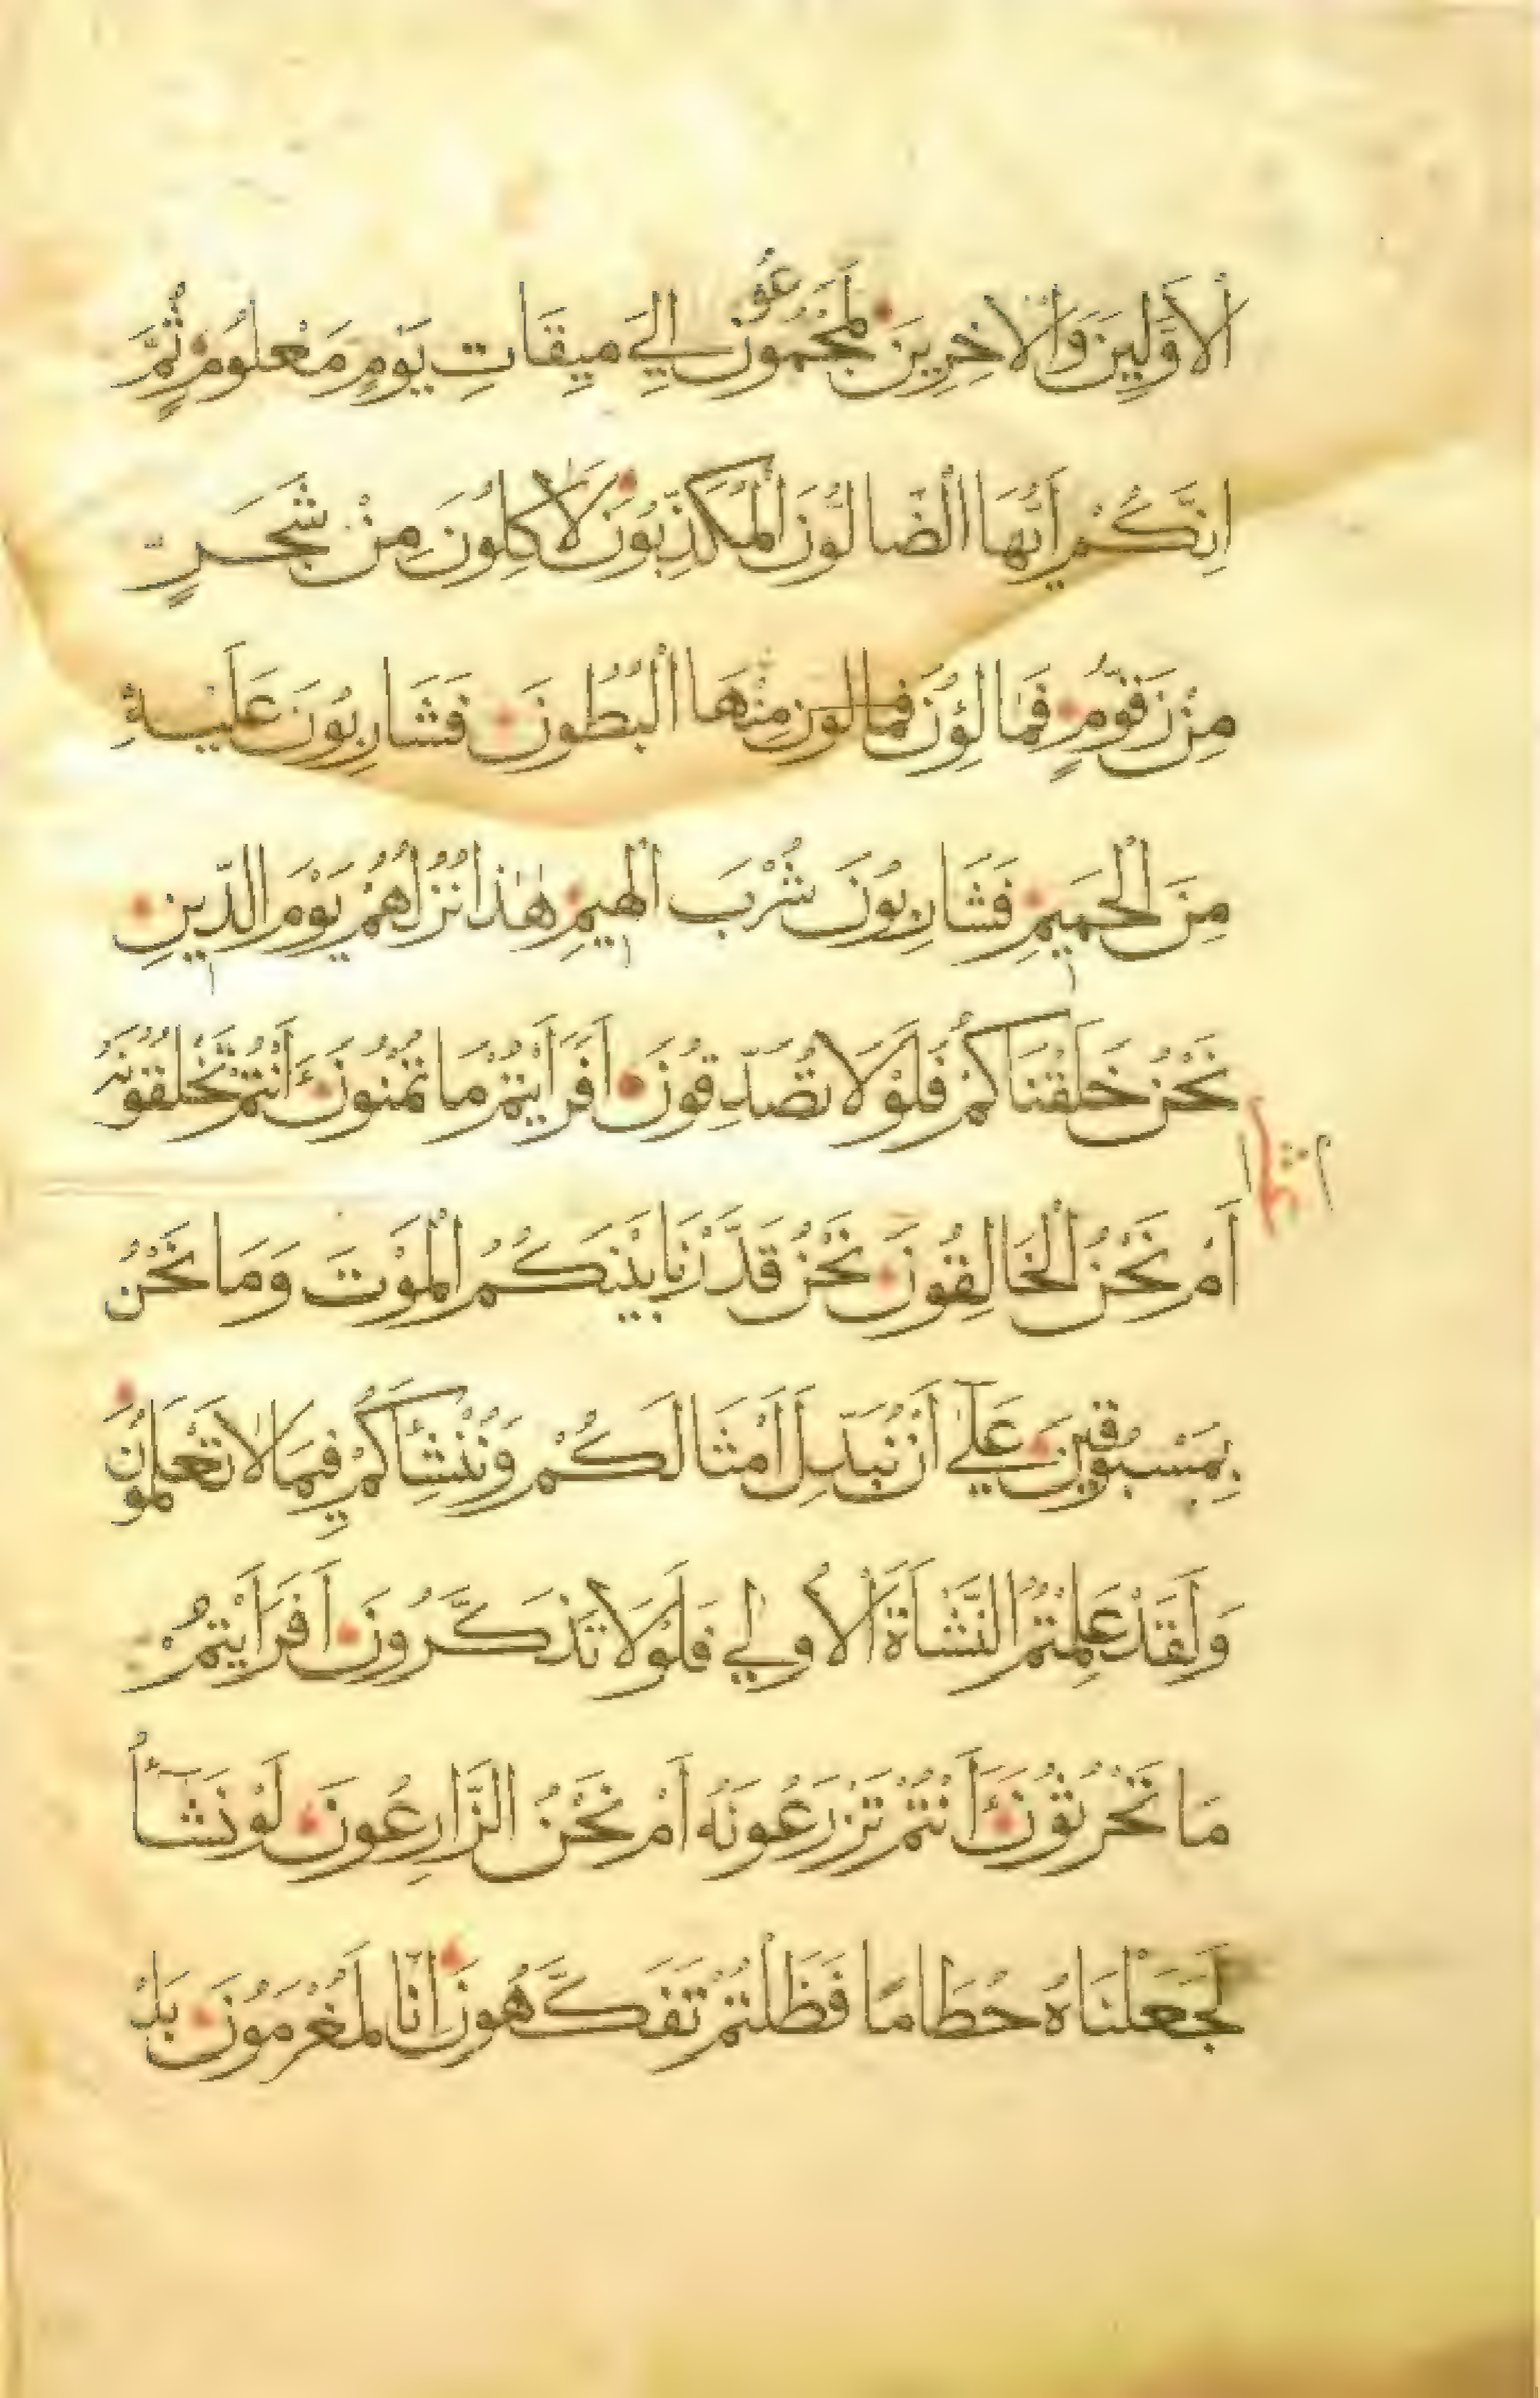 اَلْاَوَّلِينَ وَالْاٰخِرِينَ لَمَجْمُوعُونَ اِلَي مِيقَاتِ يَوْمٍ مَعْلُومٍ ثُمَّ
اِنَّكُمْ اَيُّهَا الضَّالُّونَ الْمُكَذِّبُونَ لَاٰكِلُونَ مِنْ شَجَرٍ
مِنْ زَقُّومٍ فَمَالِؤُنَ فمالون مِنْهَا الْبُطُونَ فَشَارِبُونَ عَلَيْهِ
مِنَ الْحَمِيمِ فَشَارِبُونَ شُرْبَ الْهِيمِ هٰذَا نُزُلُهُمْ يَوْمَ الدِّينِ
نَحْنُ خَلَقْنَاكُمْ فَلَوْلَا تُصَدِّقُونَ اَفَرَاَيْتُمْ مَا تُمْنُونَ ءَاَنْتُمْ تَخْلُقُونَهُ
اَمْ نَحْنُ الْخَالِقُونَ نَحْنُ قَدَّرْنَا بَيْنَكُمُ الْمَوْتَ وَمَا نَحْنُ
بِمَسْبُوقِينَ عَلَي اَنْ نُبَدِّلَ اَمْثَالَكُمْ وَنُنْشِئَكُمْ فِيمَا لَا تَعْلَمُونَ
وَلَقَدْ عَلِمْتُمُ النَّشْاَةَ الْاُولَي فَلَوْلَا تَذَكَّرُونَ اَفَرَاَيْتُمْ
مَا تَحْرُثُونَ ءَاَنْتُمْ تَزْرَعُونَهُ اَمْ نَحْنُ الزَّارِعُونَ لَوْ نَشَآءُ
لَجَعَلْنَاهُ حُطَامًا فَظَلْتُمْ تَفَكَّهُونَ اِنَّا لَمُغْرَمُونَ بَلْ